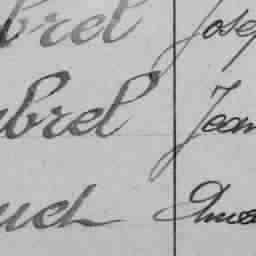 brel Josep
abrel Jean
uch